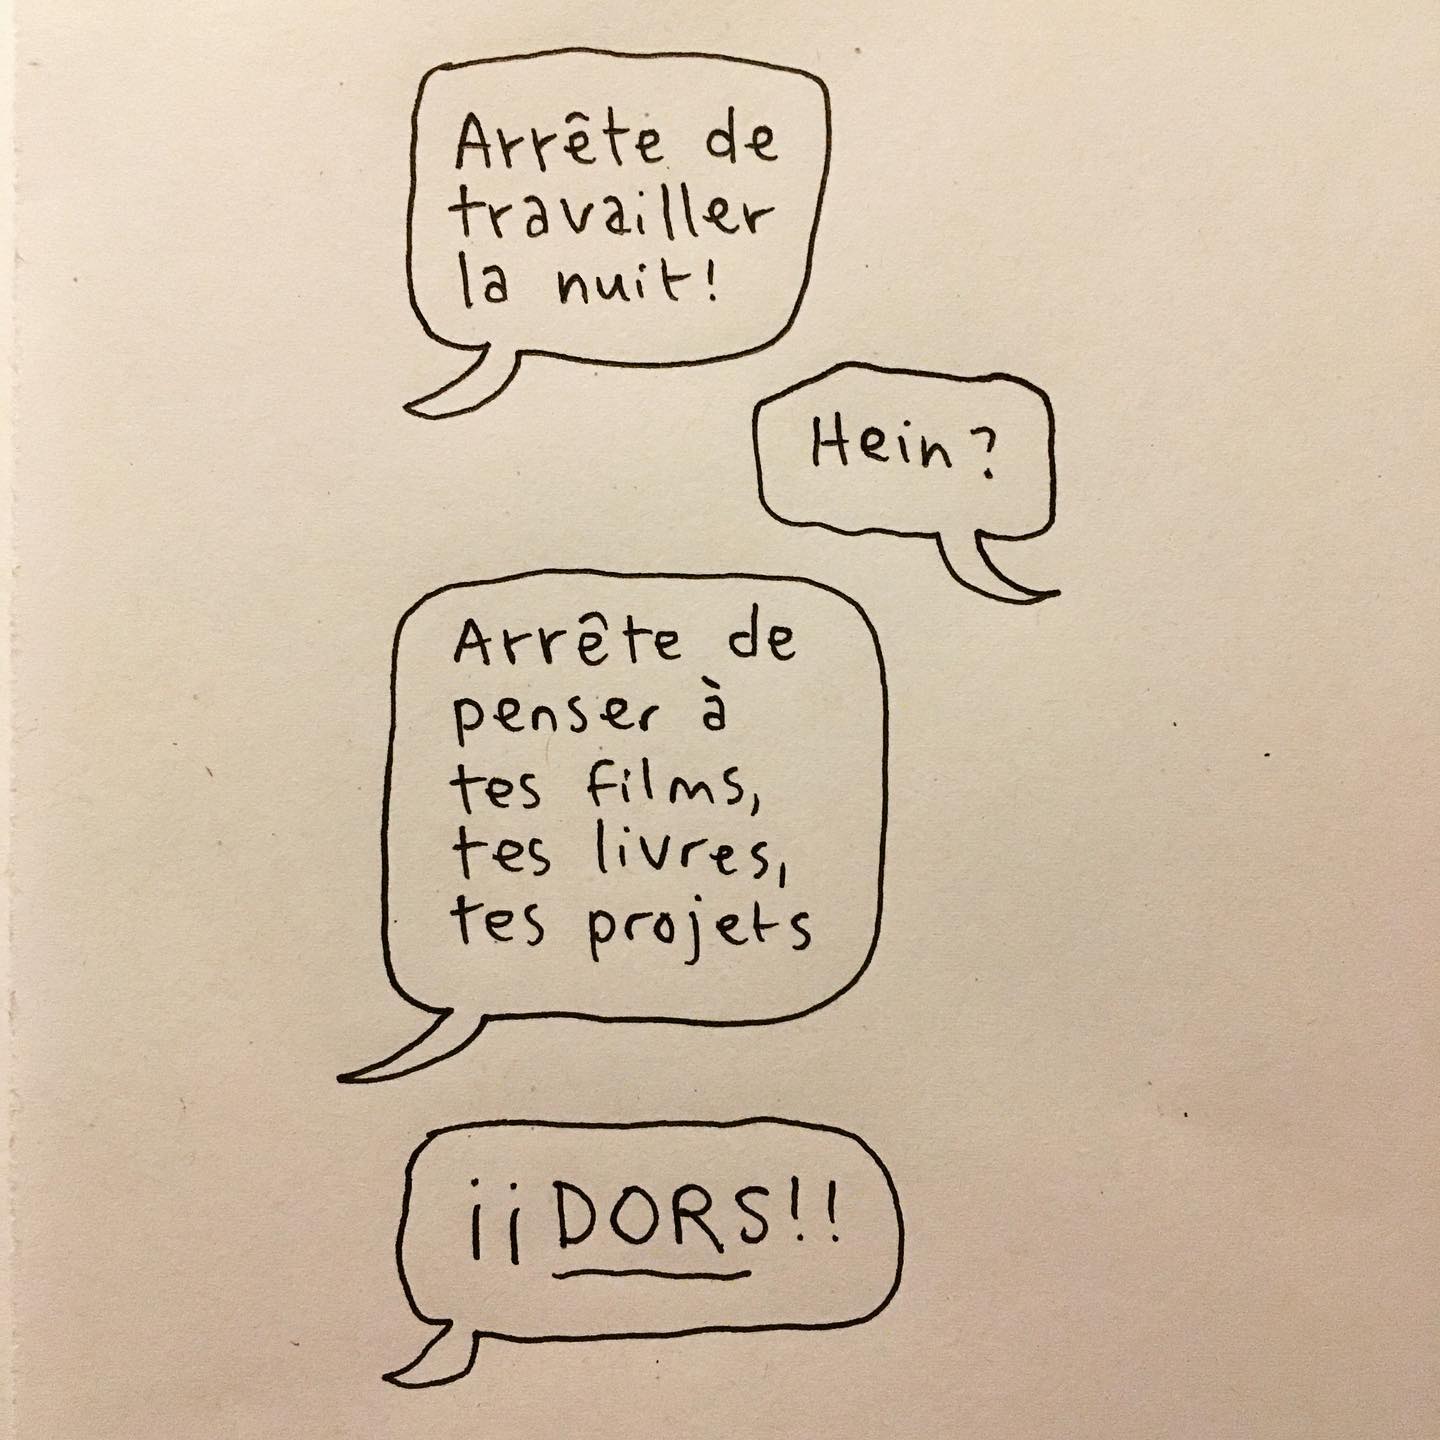 Arrête de
travailler
la nuit!
Hein?
Arrête de
penser à
tes films,
tes livres,
tes projets
¡¡DORS!!